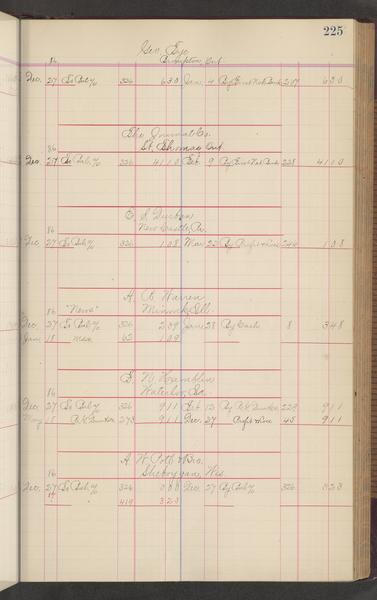 225
Geo. Eye
Brampton, Ont
86
Dec. 27 To Bal. % 326 6 3 0 Jan. 4 By First Nat Bank 207 6 3 0
The Journal Co.
St. Thomas Ont
86
Dec 27 To Bal. % 326 41 1 0 Feb. 9 By First Nat Bank 228 41 1 0
New Castle, Pa.
86
Dec. 27 To Bal. % 326 1 0 8 Mar 22 By Profit & Loss 244 1 0 8
A. B. Warren
Minonk, Ill.
86 "News"
Dec 27 To Bal. % 326 2 0 9 June 28 By Cash 8 3 4 8
Jan 18 " Mdse 62 1 0 9
G. W. Hamblin
Waterloo, Ia.
86
Dec. 27 To Bal. % 326 9 1 1 Feb. 12 By 229 9 1 1
May 278 9 1 1 Dec. 27 Profit & Loss 45 9 1 1
A. W. Pott & Bro.
Sheboygan, Wis.
86
Dec. 27 To Bal. % 326 Dec. 27 By Bal. % 326 3 2 3
419 3 2 3